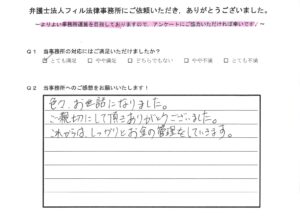 弁護士法人フィル法律事務所にご依頼いただき，ありがとうございました。
～よりよい事務所運営を目指しておりますので、アンケートにご協力いただければ幸いです。～
Q1 当事務所の対応にはご満足いただけましたか？
☑とても満足 □やや満足 □どちらでもない □やや不満 □とても不満
Q2 当事務所へのご感想をお願いいたします！
色々、お世話になりました。
ご親切にして頂きありがとうございました。
これからは、しっかりとお金の管理をしていきます。